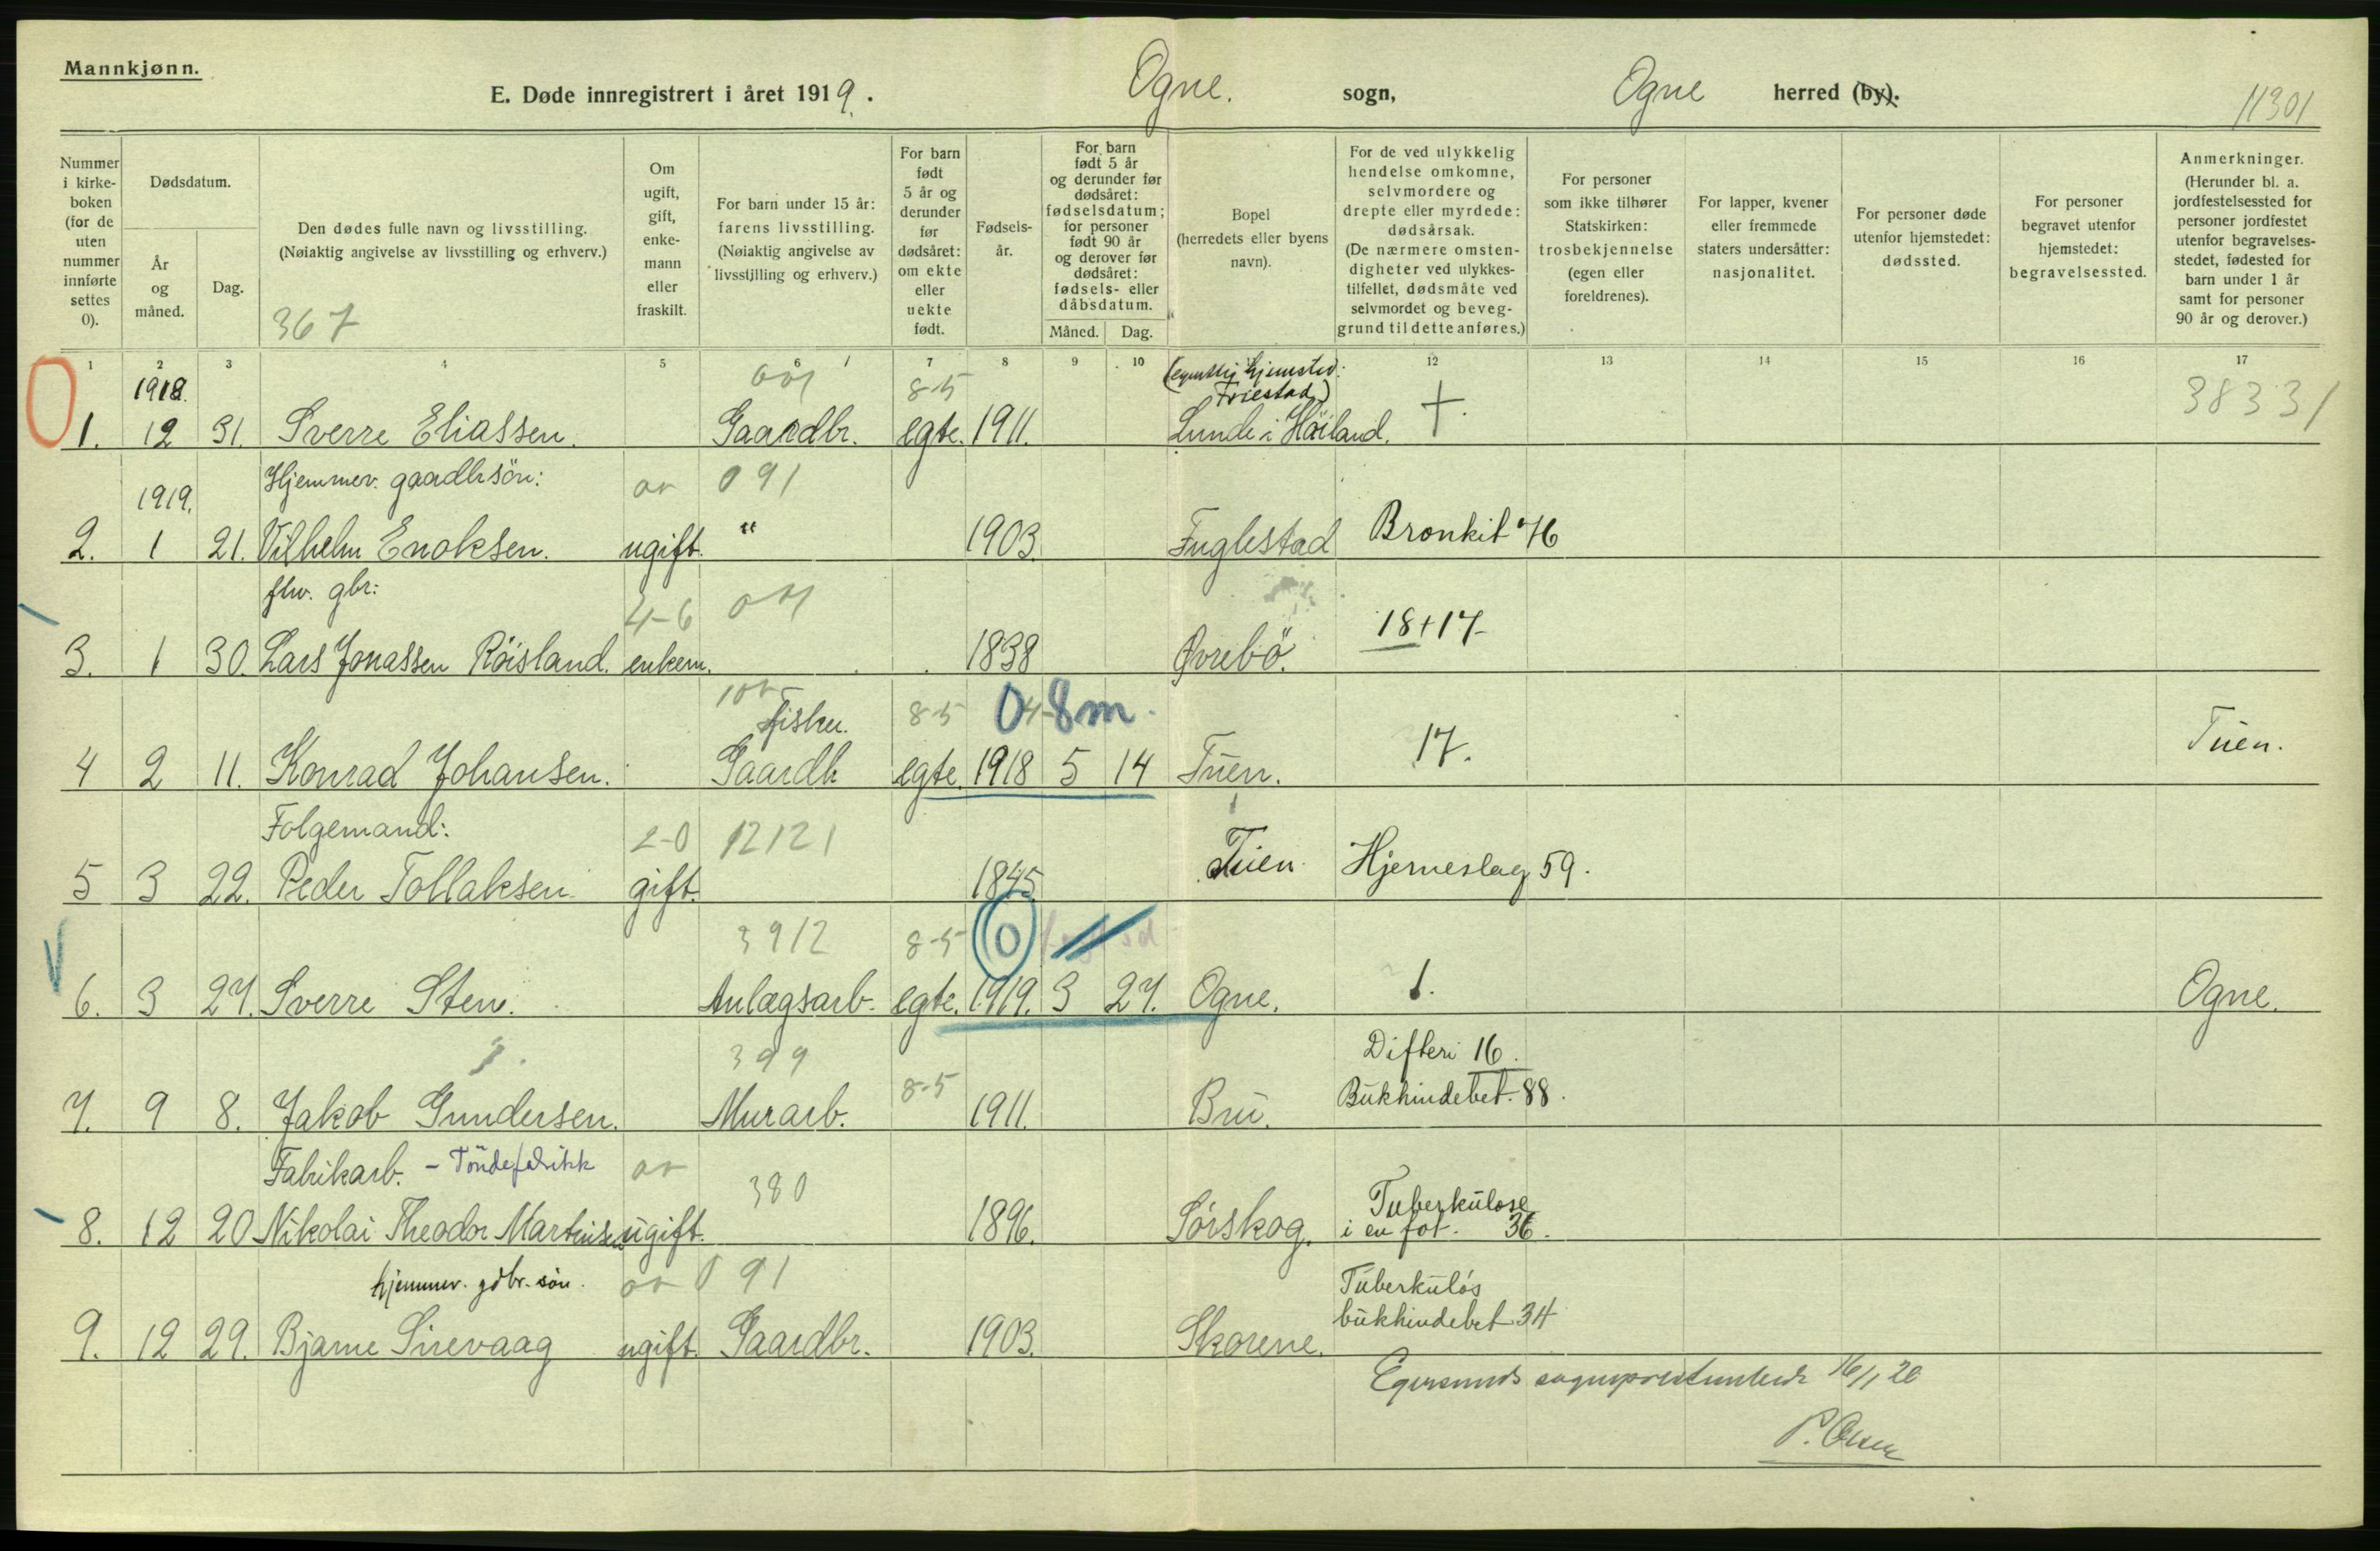 Mannkjønn.
E. Døde innregistrert i året 1919. Ogne. sogn, Ogne herred (by).
11301
Nummer i kirke-boken (for de uten nummer innførte settes 0).
Dødsdatum.
År og måned.
Dag.
Den dødes fulle navn og livsstilling.
(Nøiaktig angivelse av livsstilling og erhverv.)
367
Om ugift, gift, enke-mann eller fraskilt.
For barn under 15 år: farens livsstilling.
(Nøiaktig angivelse av livsstilling og erhverv.)
For barn født 5 år og derunder før dødsåret: om ekte eller uekte født.
Fødsels-år.
For barn født 5 år og derunder før dødsåret: fødselsdatum; for personer født 90 år og derover før dødsåret: fødsels- eller dåbsdatum.
Måned. Dag.
Bopel (herredets eller byens navn).
For de ved ulykkelig hendelse omkomne, selvmordere og drepte eller myrdede: dødsårsak.
(De nærmere omsten-digheter ved ulykkes-tilfellet, dødsmåte ved selvmordet og beveg-grund til dette anføres.)
For personer som ikke tilhører Statskirken: trosbekjennelse (egen eller foreldrenes).
For lapper, kvener eller fremmede staters undersåtter: nasjonalitet.
For personer døde utenfor hjemstedet: dødssted.
For personer begravet utenfor hjemstedet: begravelsessted.
Anmerkninger.
(Herunder bl. a. jordfestelsessted for personer jordfestet utenfor begravelses-stedet, fødested for barn under 1 år samt for personer 90 år og derover.)
1 2 3 4 5 6 7 8 9 10 12 13 14 15 16 17
1918. 8-5 hjemsted: Friestad) 38331
1. 12 31. Sverre Eliassen. Gaardbr. egte. 1911. Lunde i Høiland. +
1919. Hjemmev. gaardbrsön: 091
2. 1 21. Vilhelm Enoksen. ugift. " 1903. Fuglestad Bronkit 46
fhv. gbr: 4-6
3. 1 30. Lars Jonassen Röisland. enkem. 1838 Øvrebö. 18+17
Fisker. 8-5 0 4-8m.
4 2 11. Konrad Johansen. Gaardb egte. 1918 5 14 Tuen. 17. Tuen.
Folgemand: 2-0 12121
5 3 22. Peder Tollaksen gift. 1845 Tuen. Hjerneslag 59.
3912 8-5 0
6. 3 27. Sverre Sten. Anlægsarb. egte. 1919. 3 27. Ogne. 1. Ogne.
399 8-5 Difteri 16.
7. 9 8. Jakob Gundersen. Murarb. 1911. Bru. Bukhindebet. 88.
Fabrikarb. - Töndefabrikk 380 Tuberkulose
8. 12 20 Nikolai Theodor Martinsen ugift. 1896. Sörskog. i en fot. 36.
hjemmev. gdbr. sön. 091 Tuberkulös
9. 12 29. Bjarne Sirevaag ugift. Gaardbr. 1903. Skorene. bukhindebet 34
Egersunds sogneprestembede 16/1 20
P. Olsen